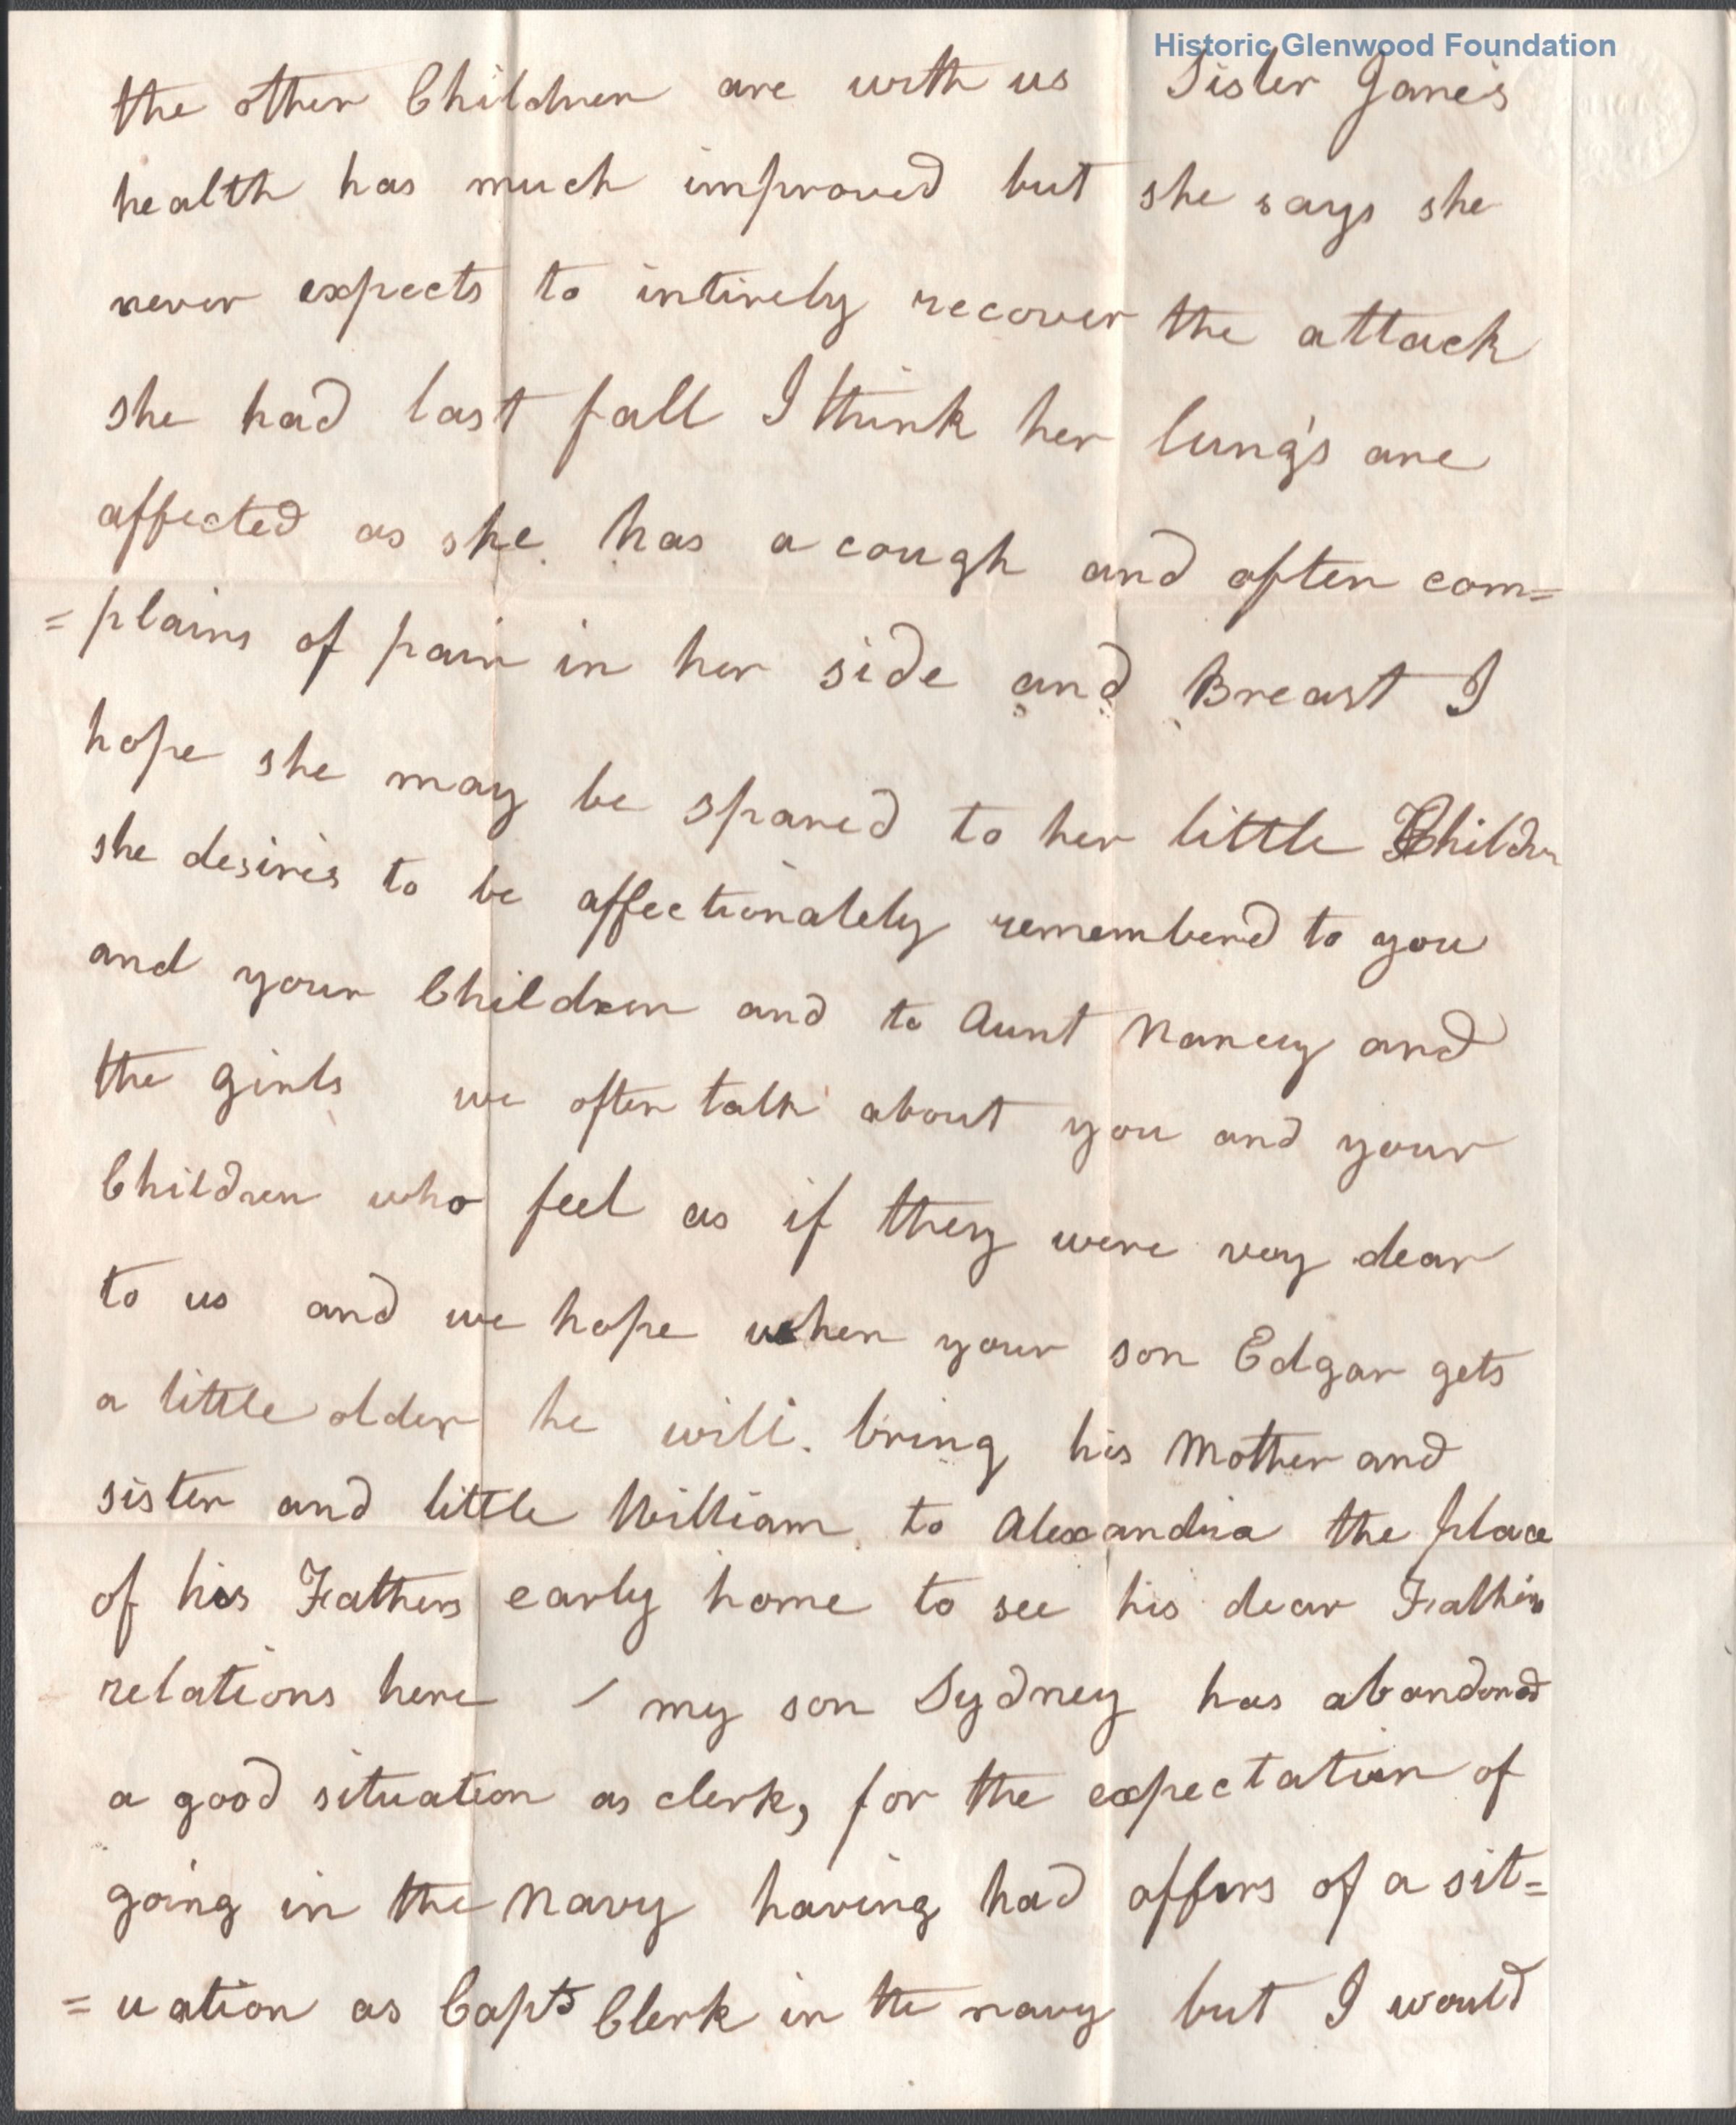 Historic Glenwood Foundation
the other Children are with us Sister Jane's
health has much improved but she says she
never expects to intirely recover the attack
she had last fall I think her lung's are
affected as she has a cough and often com=
=plains of pain in her side and Breast I
hope she may be spared to her little Childrn
she desires to be affectionately rememberd to you
and your Children and to Aunt Nancy and
the girls we often talk about you and your
Children who feel as if they were very dear
to us and we hope when your son Edgar gets
a little older he will. bring his Mother and
sister and little William to Alexandria the place
of his Fathers early home to see his dear Fathers
relations here / my son Sydney has abandond
a good situation as clerk, for the expectation of
going in the Navy having had offers of a sit=
=uation as Capts Clerk in the navy but I would